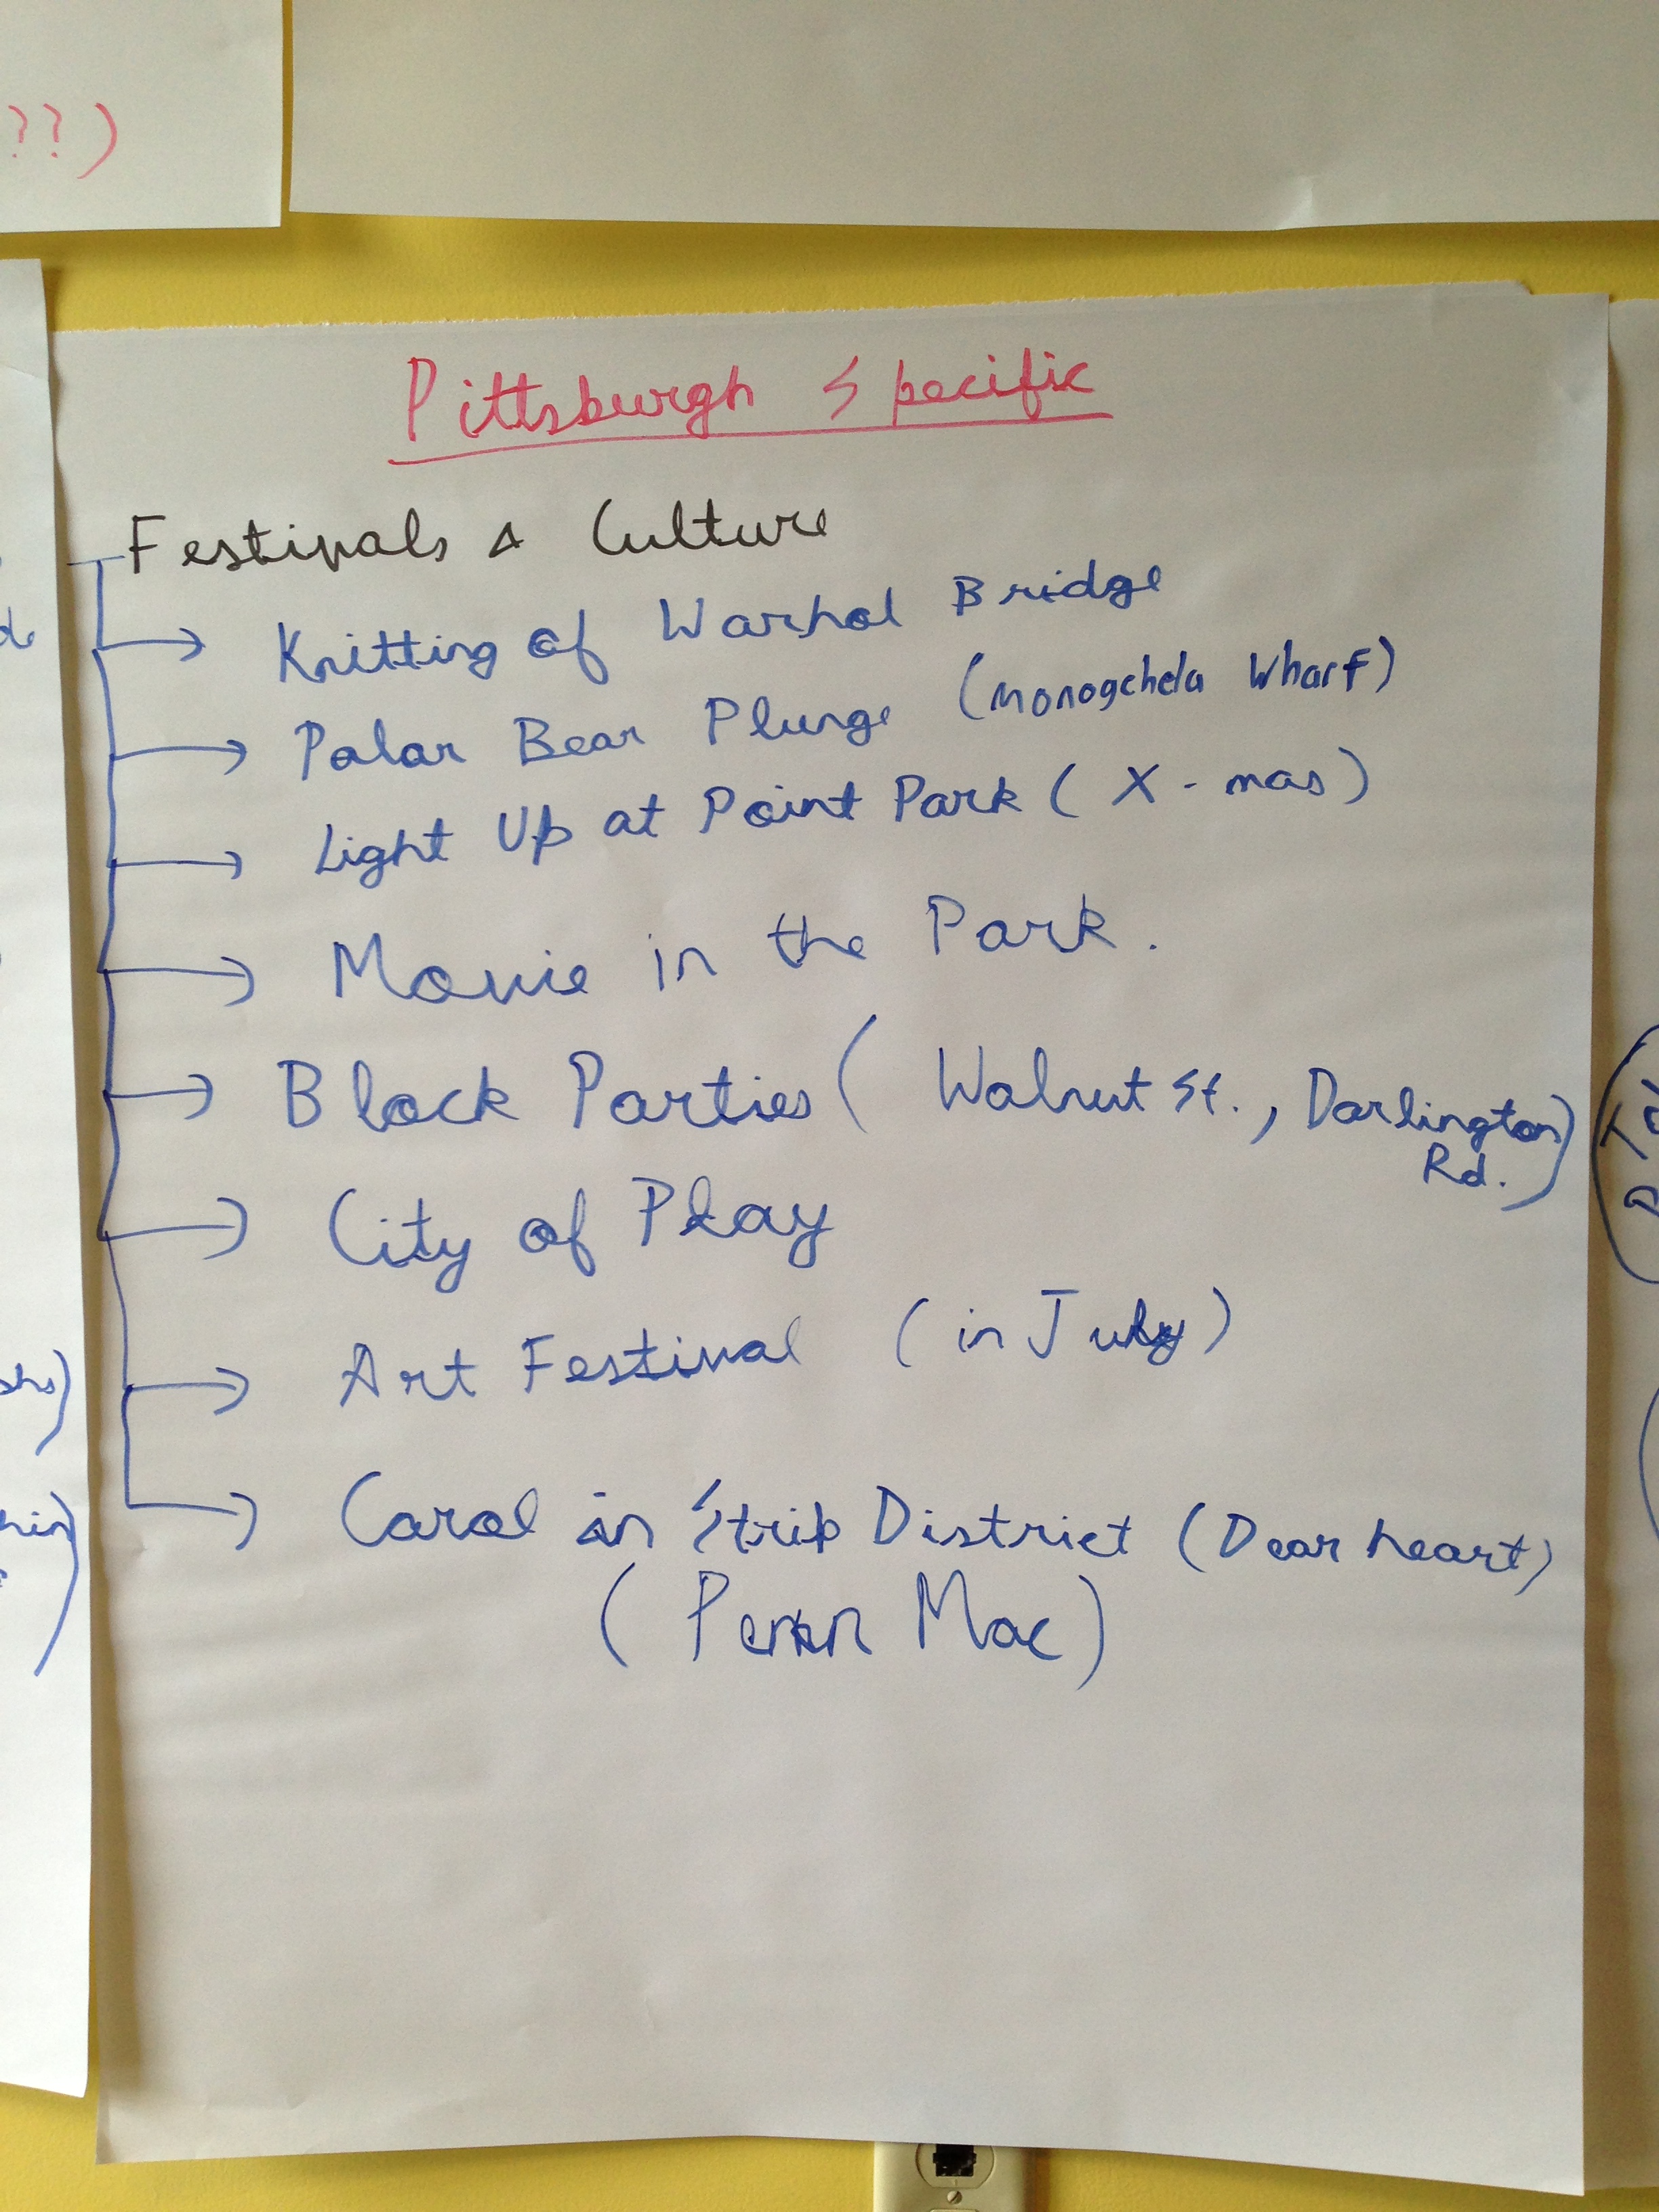 ??)
Pittsburgh Specific
Festivals & Culture
Knitting of Warhol Bridge
Polar Bear Plunge (Monogehela Wharf)
Light Up at Point Park (X-mas)
Movie in the Park.
Block Parties (Walnut St., Darlington
Rd.)
City of Play
Art Festival (in July)
Carol in Strip District (Dear heart)
(Penn Mac)